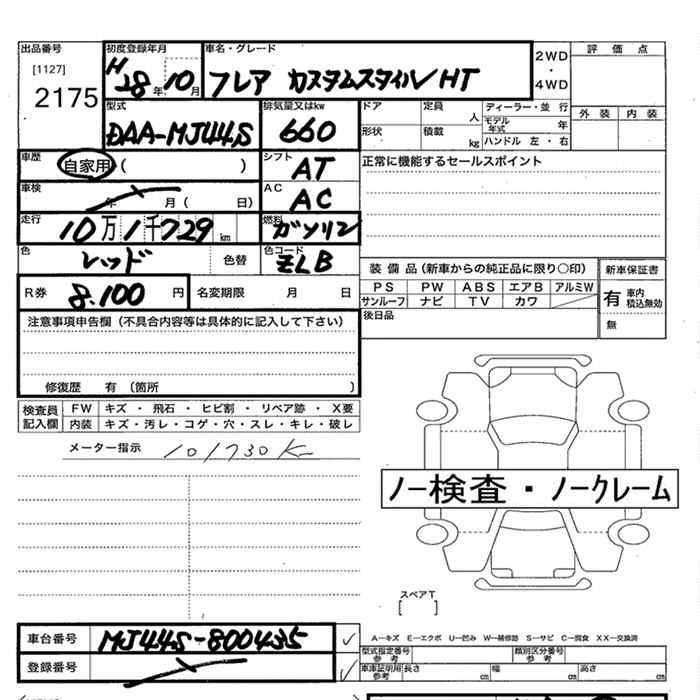 出品番号 初度登録年月 車名・グレード 2WD ・ 4WD 評価点
[1127] H 28年 10月 フレア カスタムスタイル HT
2175 外装 内装
型式 排気量又はkw ドア 定員 人 ディーラー・並 行
DAA-MJ44S 660 形状 積載 kg モデル年式 年 ハンドル 左・右
車歴 自家用 ( ) シフト AT 正常に機能するセールスポイント
車検 年 月 ( 日) AC AC
走行 10万1千729 km 燃料 ガソリン
色 レッド 色替 色コード ZLB
装備品 (新車からの純正品に限り○印) 新車保証書
R券 8,100 円 名変期限 月 日
PS PW ABS エアB アルミW 有 車内積込無効
サンルーフ ナビ TV カワ 無
後日品
注意事項申告欄 (不具合内容等は具体的に記入して下さい)
修復歴 有 (箇所 )
検査員記入欄 FW キズ ・ 飛石 ・ ヒビ割 ・ リペア跡 ・ X要
内装 キズ・汚レ・コゲ・穴・スレ・キレ・破レ
メーター指示 101730 Km
ノー検査・ノークレーム
スペアT
[ ]
車台番号 MJ44S-800435
登録番号
A―キズ E―エクボ U―凹み W―補修跡 S―サビ C―腐食 XX―交換済
型式指定番号 参考 類別区分番号 参考
車庫証明用 参考 長さ cm 幅 cm 高さ cm